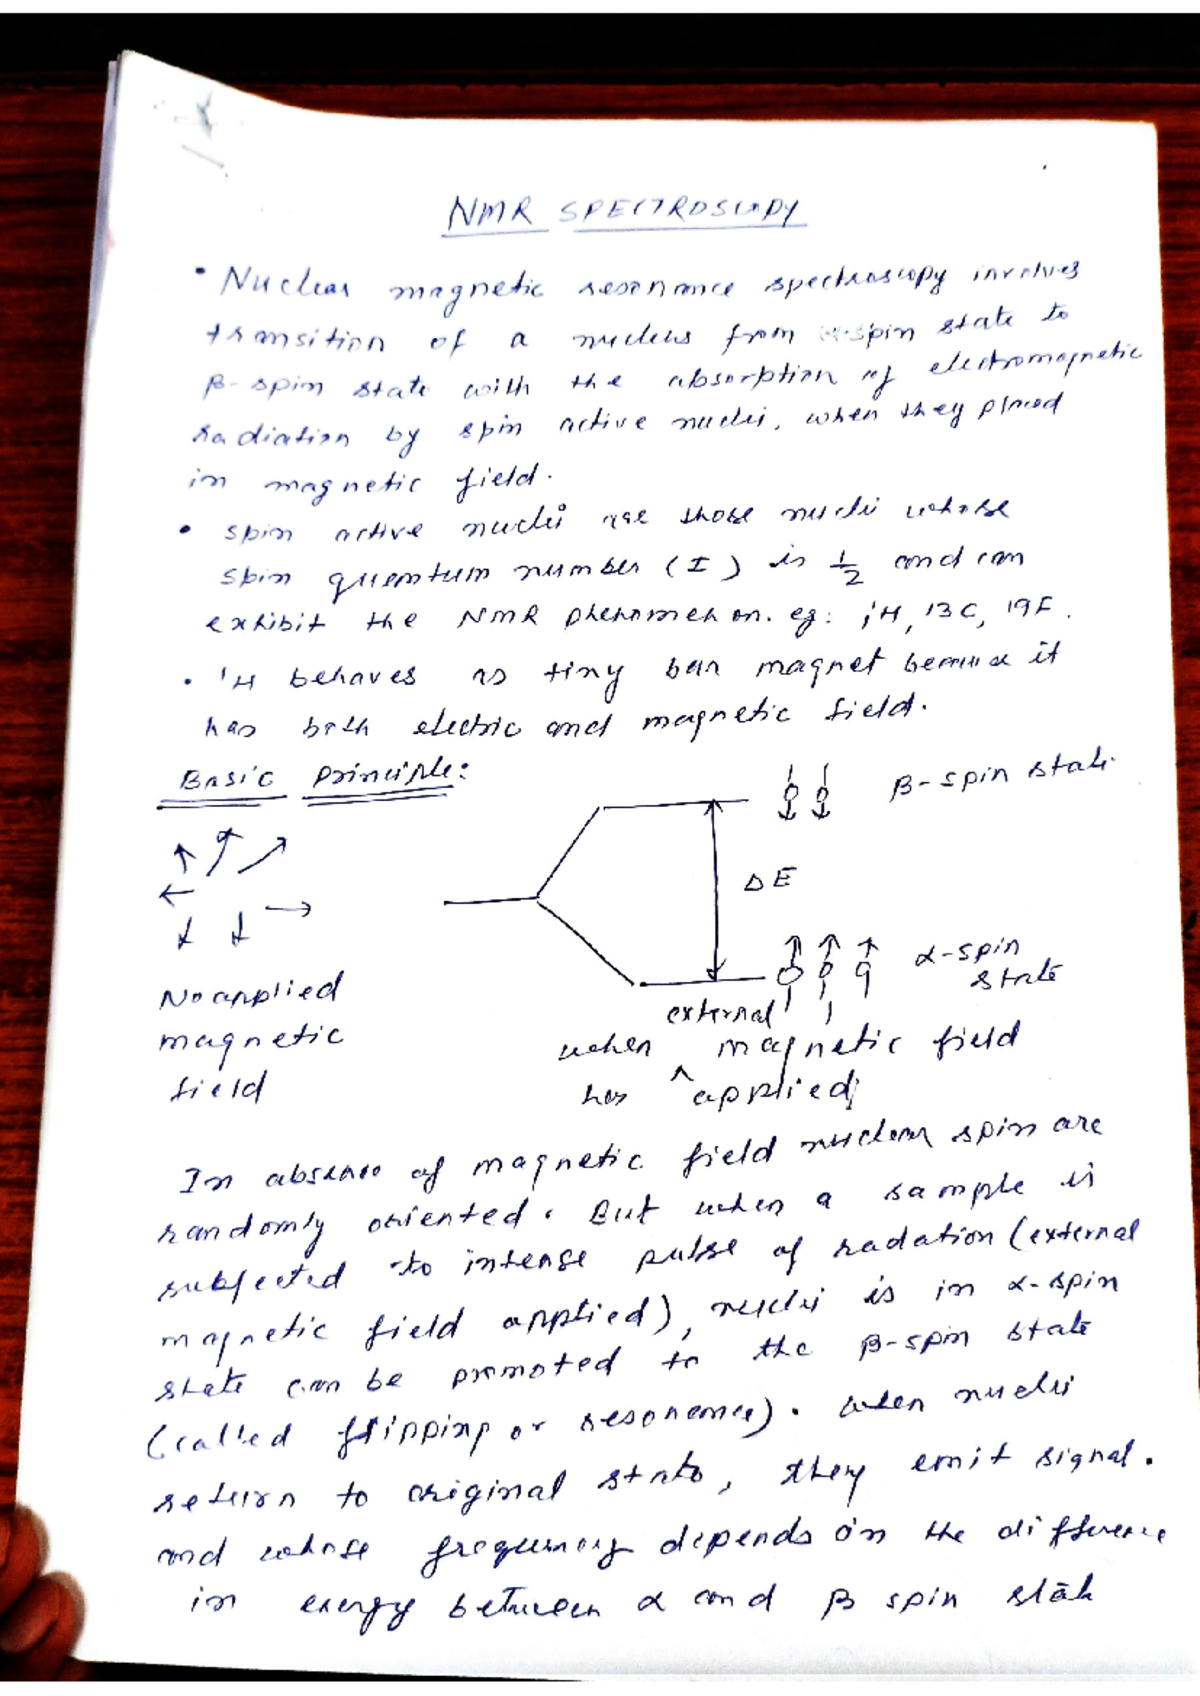 NMR SPECTROSCOPY
• Nuclear magnetic resonance spectroscopy involves
transition of a nucleus from α-spin state to
β-spin state with the absorption of electromagnetic
radiation by spin active nuclei, when they placed
in magnetic field.
• spin active nuclei are those nuclei whose
spin quantum number (I) is 1/2 and can
exhibit the NMR phenomenon. eg: 1H, 13C, 19F.
• 1H behaves as tiny bar magnet because it
has both electric and magnetic field.
Basic principle:
β-spin state
ΔE
α-spin
state
No applied
magnetic
field
external
when ^ magnetic field
has applied
In absence of magnetic field nuclear spin are
randomly oriented. But when a sample is
subjected to intense pulse of radation (external
magnetic field applied), nuclei is in α-spin
state can be promoted to the β-spin state
(called flipping or resonance). when nuclei
return to original state, they emit signal.
and whose frequency depends on the difference
in energy between α and β spin state